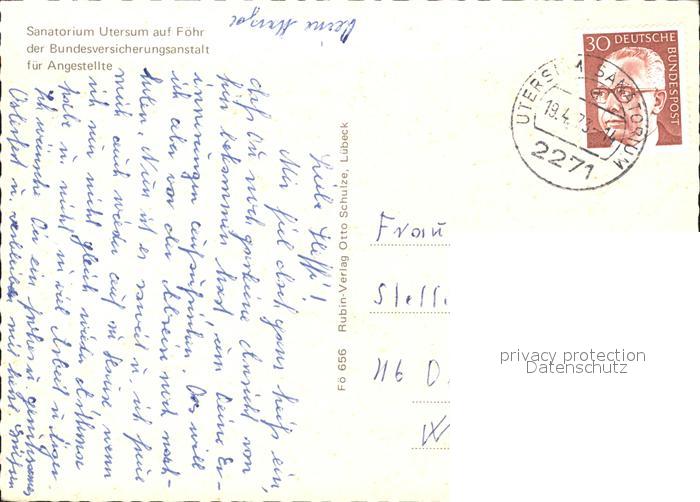 Sanatorium Utersum auf Föhr
der Bundesversicherungsanstalt
für Angestellte
Liebe Steffi!
Mir fiel doch ganz heiß ein,
daß Du noch gar keine Ansicht von
hier bekommen hast, um Deine Er-
innerungen aufzufrischen. Das will
ich aber vor der Abreise noch nach-
holen. Nun ist es soweit u. ich freue
mich auch wieder auf zu Hause wenn
ich nur nicht gleich wieder Asthma
habe u. nicht zu viel Arbeit u. Ärger.
Ich wünsche Dir ein frohes u. gemütliches
Osterfest u. verbleibe mit
Deine
Fö 656 Rubin-Verlag Otto Schulze, Lübeck
30 DEUTSCHE BUNDESPOST
UTERSUM SANATORIUM
19.4.73-14
2271
Frau
Steff
46 D
privacy protection
Datenschutz